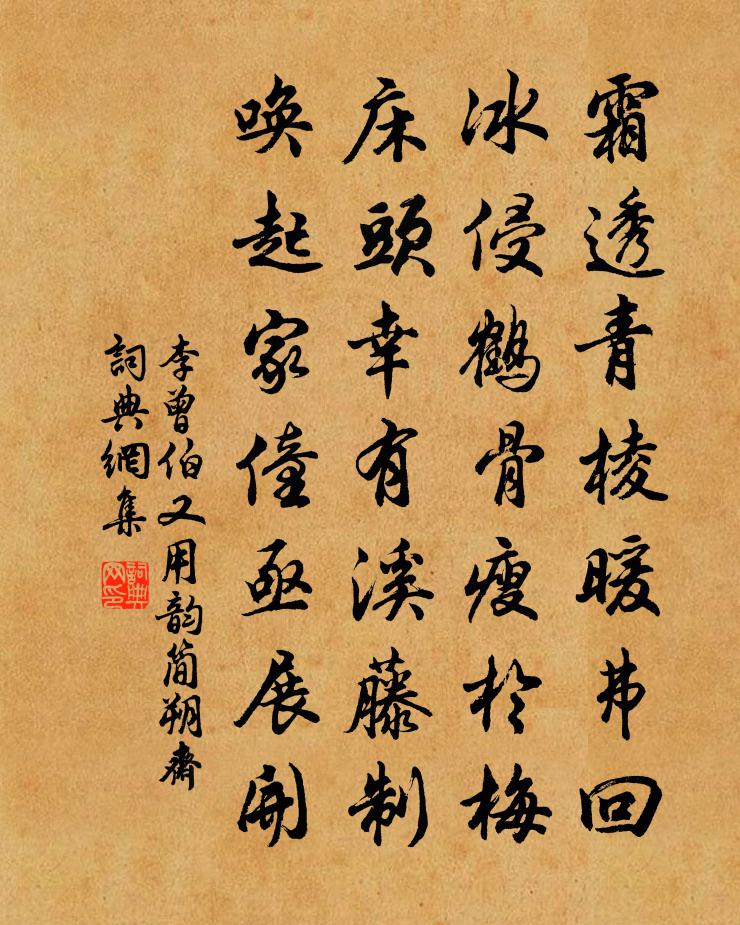 霜透青棱暖弗回
冰侵鶴骨瘦於梅
床頭幸有溪藤制
喚起家僮亟展開
李曾伯又用韵简朔齋
詞典網集
詞典網印